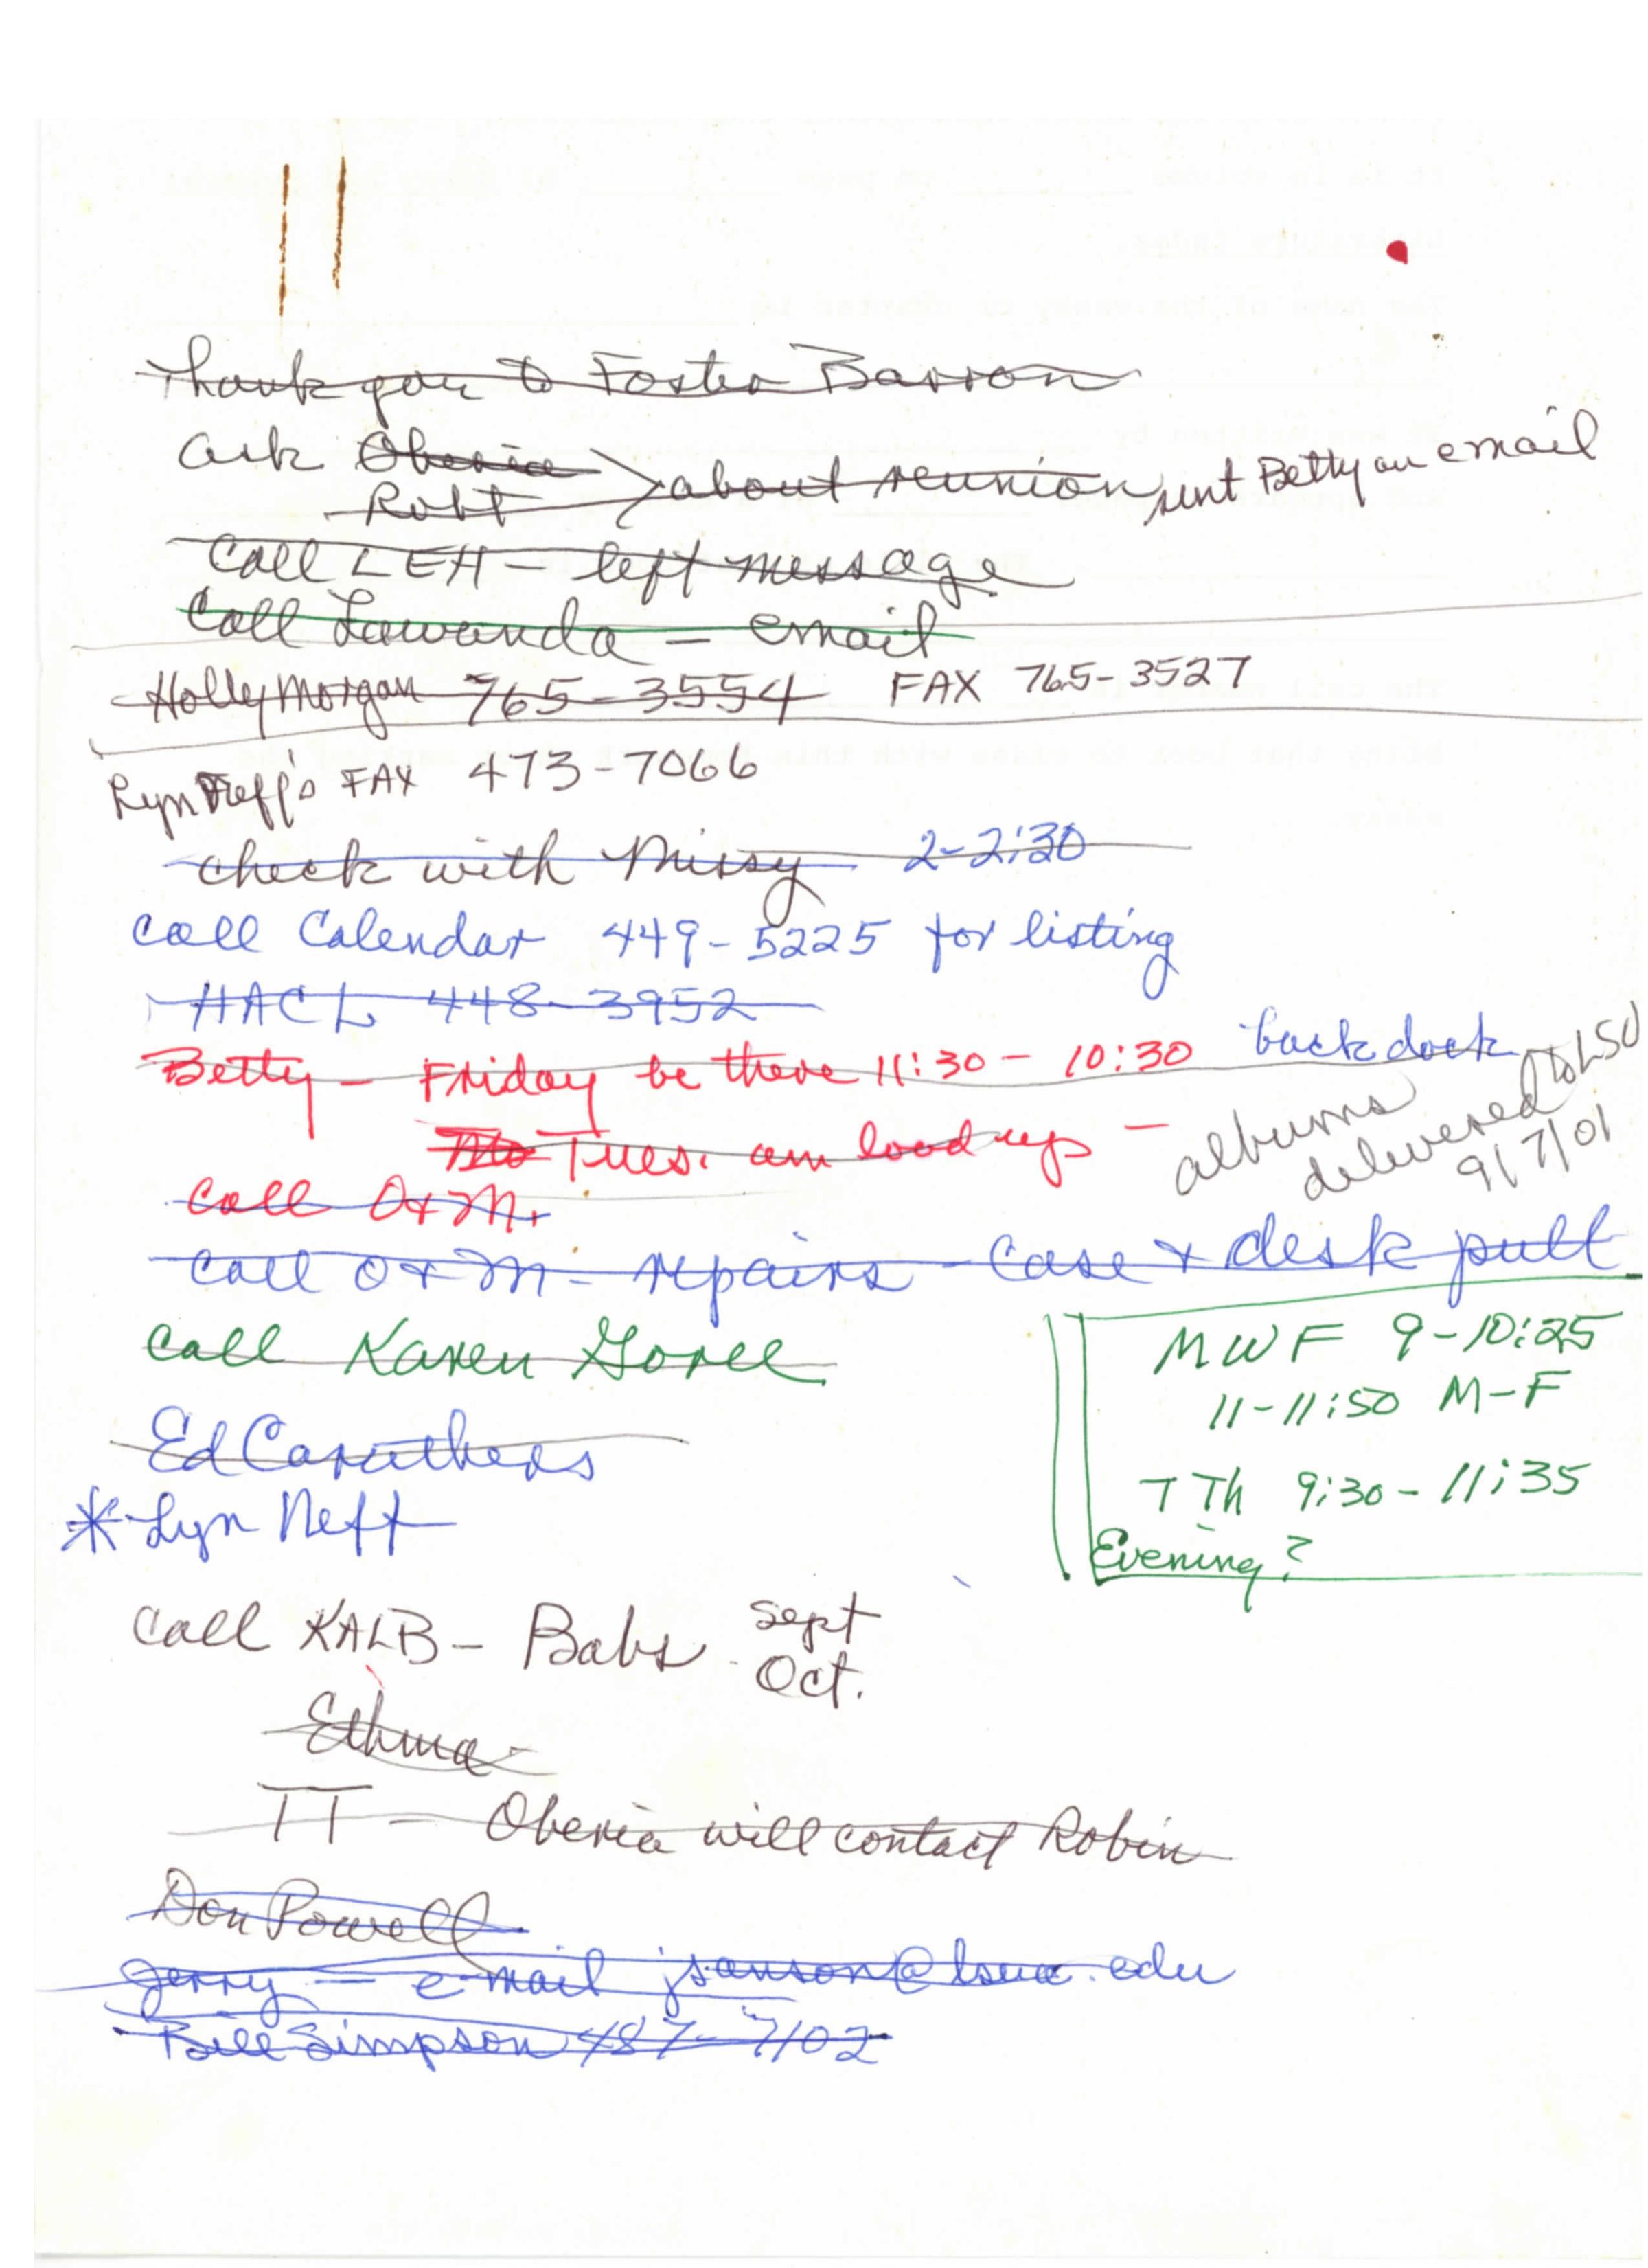 Thank you to Foster Barron
ask Oberia
Robt > about reunion, sent Betty an email
Call LEH - left message
Call Lawanda - email
Holly Morgan 765-3554 FAX 765-3527
Lyn Neff's FAX 473-7066
check with Missy 2-2:30
Call Calendar 449-5225 for listing
HACL 448-3952
Betty - Friday be there 11:30 - 10:30 back dock
Tues. am load up - albums
delivered to LSU
9/7/01
Call O & M
Call O & M - repairs - Case & desk pull
Call Karen Goree
Ed Caruthers
* Lyn Neff
MWF 9-10:25
11-11:50 M-F
T Th 9:30-11:35
Evening?
Call KALB - Babs Sept
Oct.
Ethma -
TT - Oberia will contact Robin
Don Powell
Jerry - e-mail jsanson@lsua.edu
Bill Simpson 487-7102